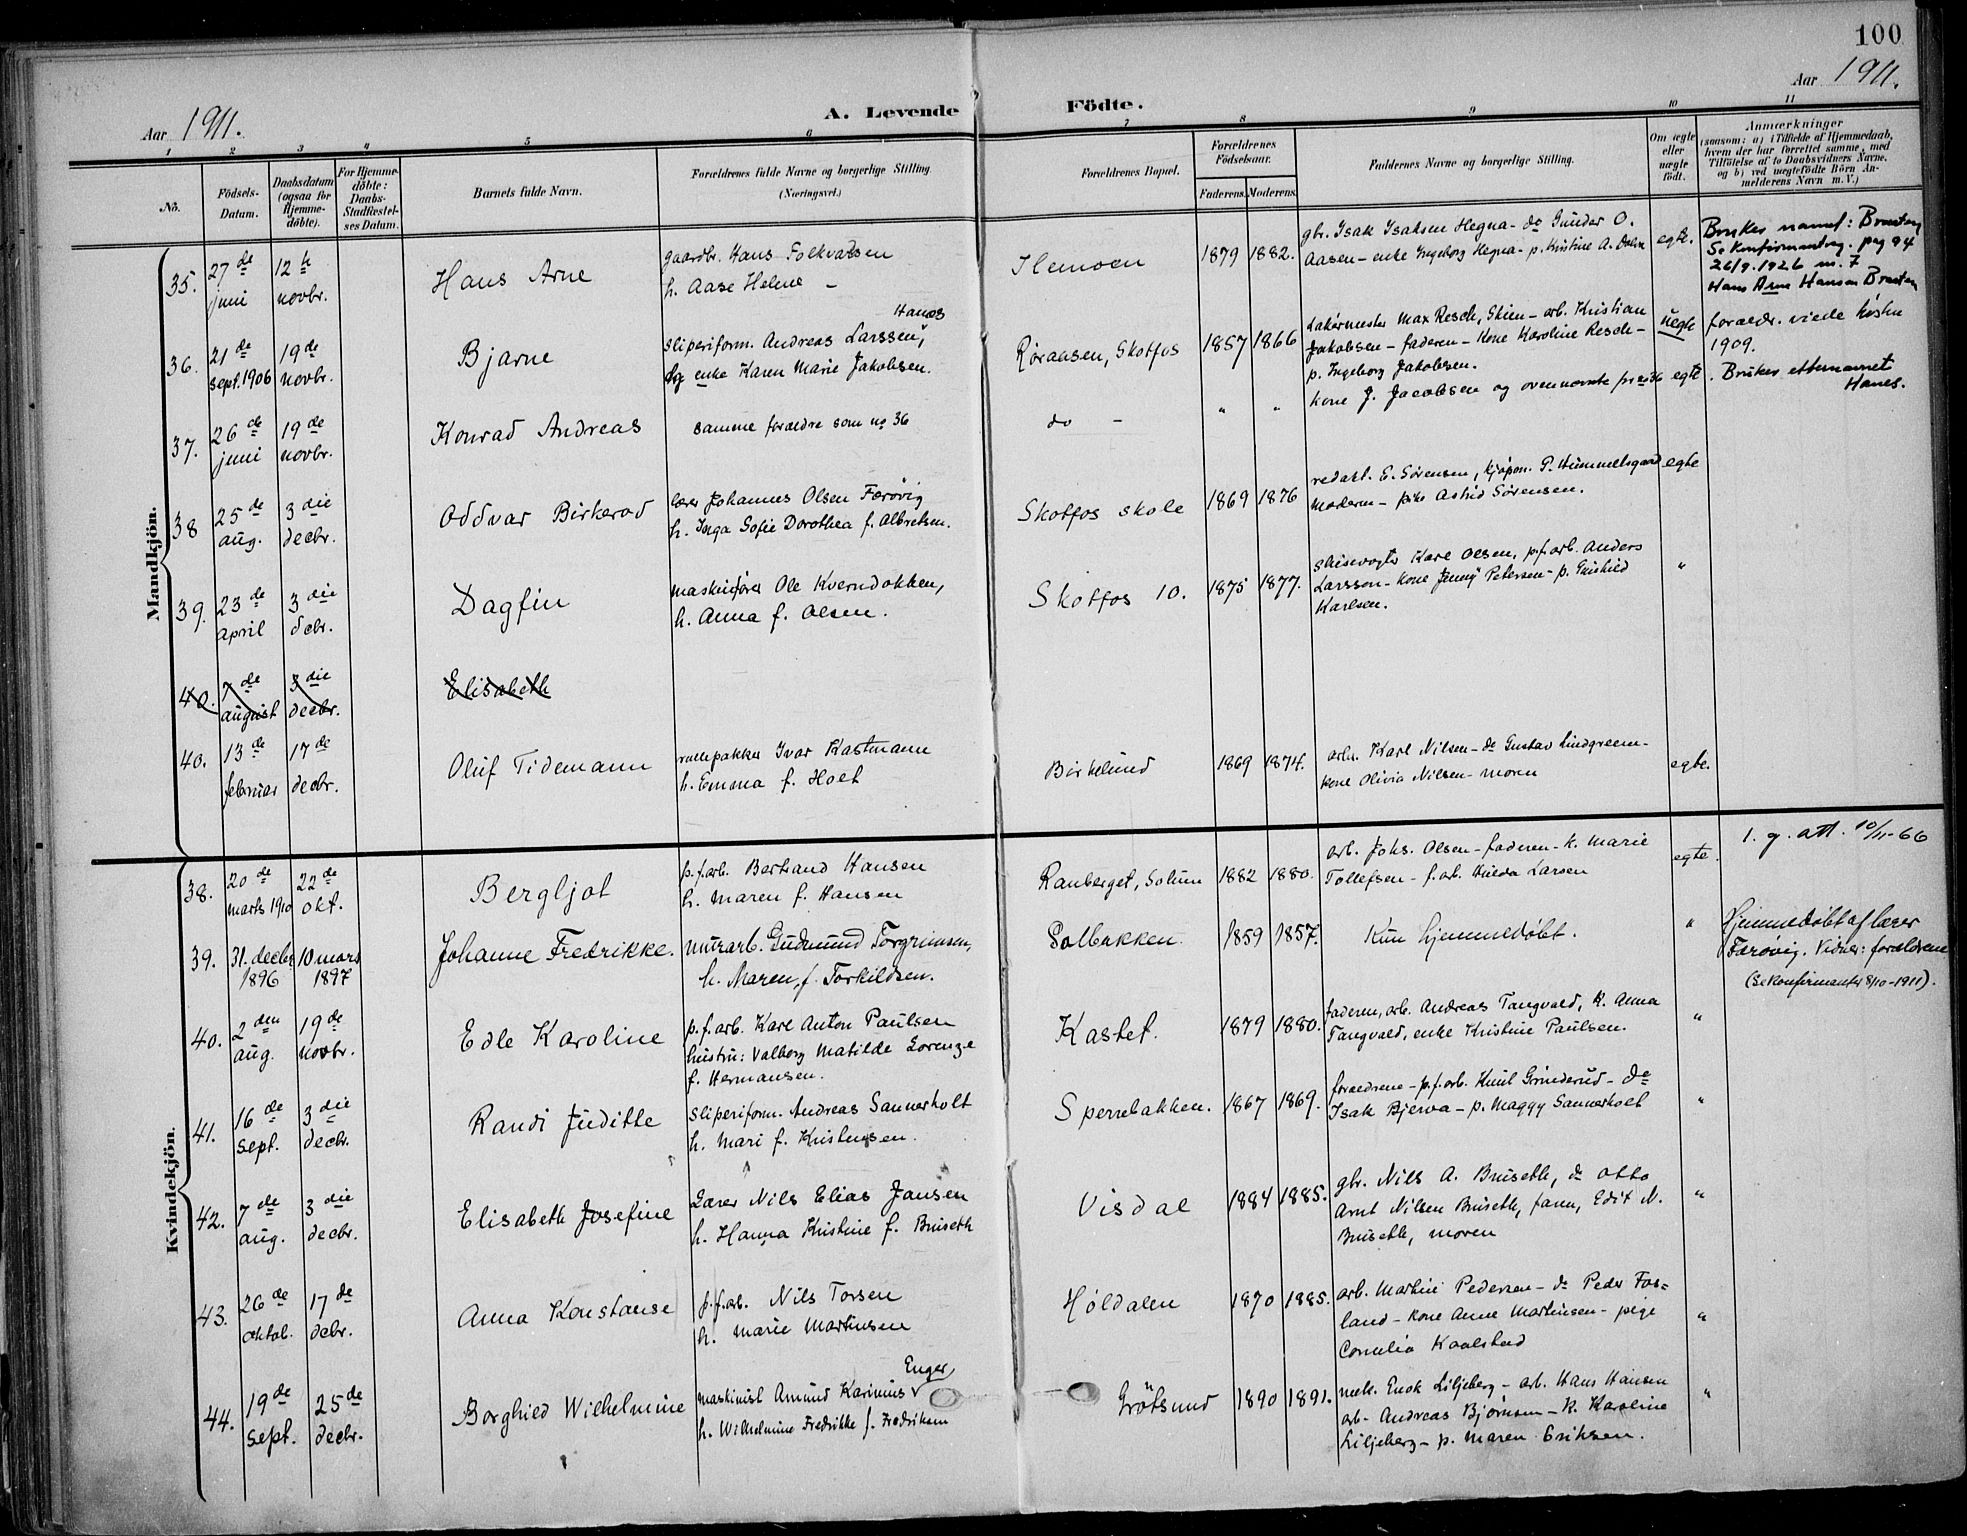 100
Aar 1911.
A. Levende Födte.
Aar 1911.
1 2 3 4 5 6 7 8 9 10 11
Nö.
Födsels-Datum.
Daabsdatum (ogsaa for Hjemme-döbte).
For Hjemme-döbte: Daabs-Stadfæstel-ses Datum.
Barnets fulde Navn.
Forældrenes fulde Navne og borgerlige Stilling (Næringsvei.)
Forældrenes Bopæl.
Forældrenes Födselsaar.
Faderens. Moderens.
Faddernes Navne og borgerlige Stilling.
Om ægte eller uægte födt.
Anmærkninger
(saasom: a) i Tilfælde af Hjemmedaab,
hvem der har forrettet samme, med
Tilföielse af to Daabsvidners Navne,
og b) ved uægtefödte Börn An-
melderens Navn m.V.)
Mandkjön.
35. 27de juni 12te novbr. Hans Arne
gaardbr. Hans Folkvalsen
h. Aase Helene -
Hemoen 1879 1882.
gbr. Isak Isaksen Hegna - do Gunder O.
Aasen - enke Ingeborg Hegna - p. Kristine A. Dahn
egte.
Bruker navnet: Braaten
Se konfirmantreg. pag 94
26/9.1926 nr. 7
Hans Arne Hansen Braaten
36. 21de sept. 1906 19de novbr. Bjarne
Hanes
sliperiform. Andreas Larssen,
og enke Karen Marie Jakobsen.
Røraasen, Skotfos 1857 1866
Lakérmester Max Resch, Skien - arb. Kristian
Jakobsen - faderen - Kone Karoline Resch -
p. Ingeborg Jakobsen.
uegte
foraldr. viede høsten
1909.
37. 26de juni 19de novbr. Konrad Andreas
samme forældre som no 36
do - " "
Kone J. Jacobsen og ovennævnte for no 36
egte
. Bruker etternavnet
Hanes.
38 25de aug. 3die decbr. Oddvar Birkerod
lærer Johannes Olsen Færövig
h. Inga Sofie Dorothea f. Albretsen.
Skotfos skole 1869 1876
redakt. E. Sörensen, kjøpm. P. Hummelsgaard
moderen - frk. Astrid Sörensen.
egte
39. 23de april 3die decbr. Dagfin
maskinfører Ole Kverndokken,
h. Anna f. Olsen.
Skotfos 10. 1875 1877.
Karl Olsen, p.f.arb. Anders
Larsson - kone Jenny Petersen - p.
Karlsen.
"
40. 7de august 3die decbr. Elisabeth
40. 13de februar 17de decbr. Oluf Tidemann
rullepakker Ivar Kastmann
h. Emma f. Holt
Birkelund 1869 1874.
arb. Karl Nilsen - do Gustav Lindgreen -
kone Olivia Nilsen - moren
egte.
Kvindekjön.
38. 20de marts 1910 22de okt. Bergljot
p.f.arb. Bertrand Hansen
h. Maren f. Hansen
Ranberget, Solum 1882 1880.
arb. Johs. Olsen - faderen - k. Marie
Tollefsen - f. arb. Hulda Larsen
egte.
1. g. att. 10/11-66
39. 31. decbr 1896 10 mars 1897 Johanne Fredrikke.
murarb. Gudmund Torgrimsen,
h. Maren, f. Torkildsen.
Solbakken. 1859 1857.
Kun hjemmedøbt.
"
Hjemmedøbt af lærer
Færövig. Vidner: forældrene
(Se konfirmanter 8/10-1911).
40. 2den aug. 19de novbr. Edle Karoline
p.f.arb. Karl Anton Paulsen
hustru: Valborg Matilde Lorenze
f. Hermansen.
Kastet. 1879 1880.
faderen, arb. Andreas Tangvald, k. Anna
Tangvald, enke Kristine Paulsen.
"
41. 16de sept. 3die decbr. Randi Juditte
sliperiform. Andreas Sannerholt
h. Mari f. Kristensen.
Sperrebakken. 1867 1869.
forældrene - p.f.arb. Knut Grinderud - do
Isak Bjerva - p. Maggy Sannerholt
"
42. 7de aug. 3die decbr. Elisabeth Josefine
Lærer Nils Elias Jansen
h. Hanna Kristine f. Bruseth
Visdal 1884 1885.
gbr. Nils A. Bruseth, do Otto
Arnt Nilsen Bruseth, faren, Edit N.
Bruseth, moren
"
43. 26de oktob. 17de decbr. Anna Konstanse
f.f.arb. Nils Torsen
h. Marie Martinsen
Høldalen 1870 1885.
arb. Martin Pedersen - do Peder Fos=
land - kone Anne Martinsen - pige
Cornelia Kaalstad
"
44. 19de sept. 25de decbr. Borghild Wilhelmine
Enger
maskinist Amund Karinius
h. Wilhelmine Fredrikke f. Fredriksen
Grötsund 1890 1891.
mek. Enok Liljeberg - arb. Hans Hansen
arb. Andreas Bjørnsen - k. Karoline
Liljeberg - p. Maren Eriksen.
"